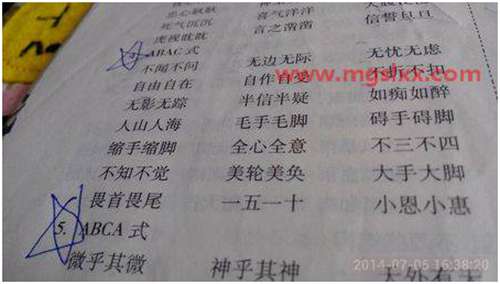 忠心耿耿 喜气洋洋
死气沉沉 言之凿凿 信誓旦旦
虎视眈眈
ABAC 式
不闻不问 无边无际 无忧无虑
自由自在 自作自受 不折不扣
www.mgshxx.com
无影无踪 半信半疑 如痴如醉
人山人海 毛手毛脚 碍手碍脚
缩手缩脚 全心全意 不三不四
不知不觉 美轮美奂 大手大脚
畏首畏尾 一五一十 小恩小惠
5. ABCA 式
微乎其微 神乎其神 天外有天
2014-07-05 16:38:20